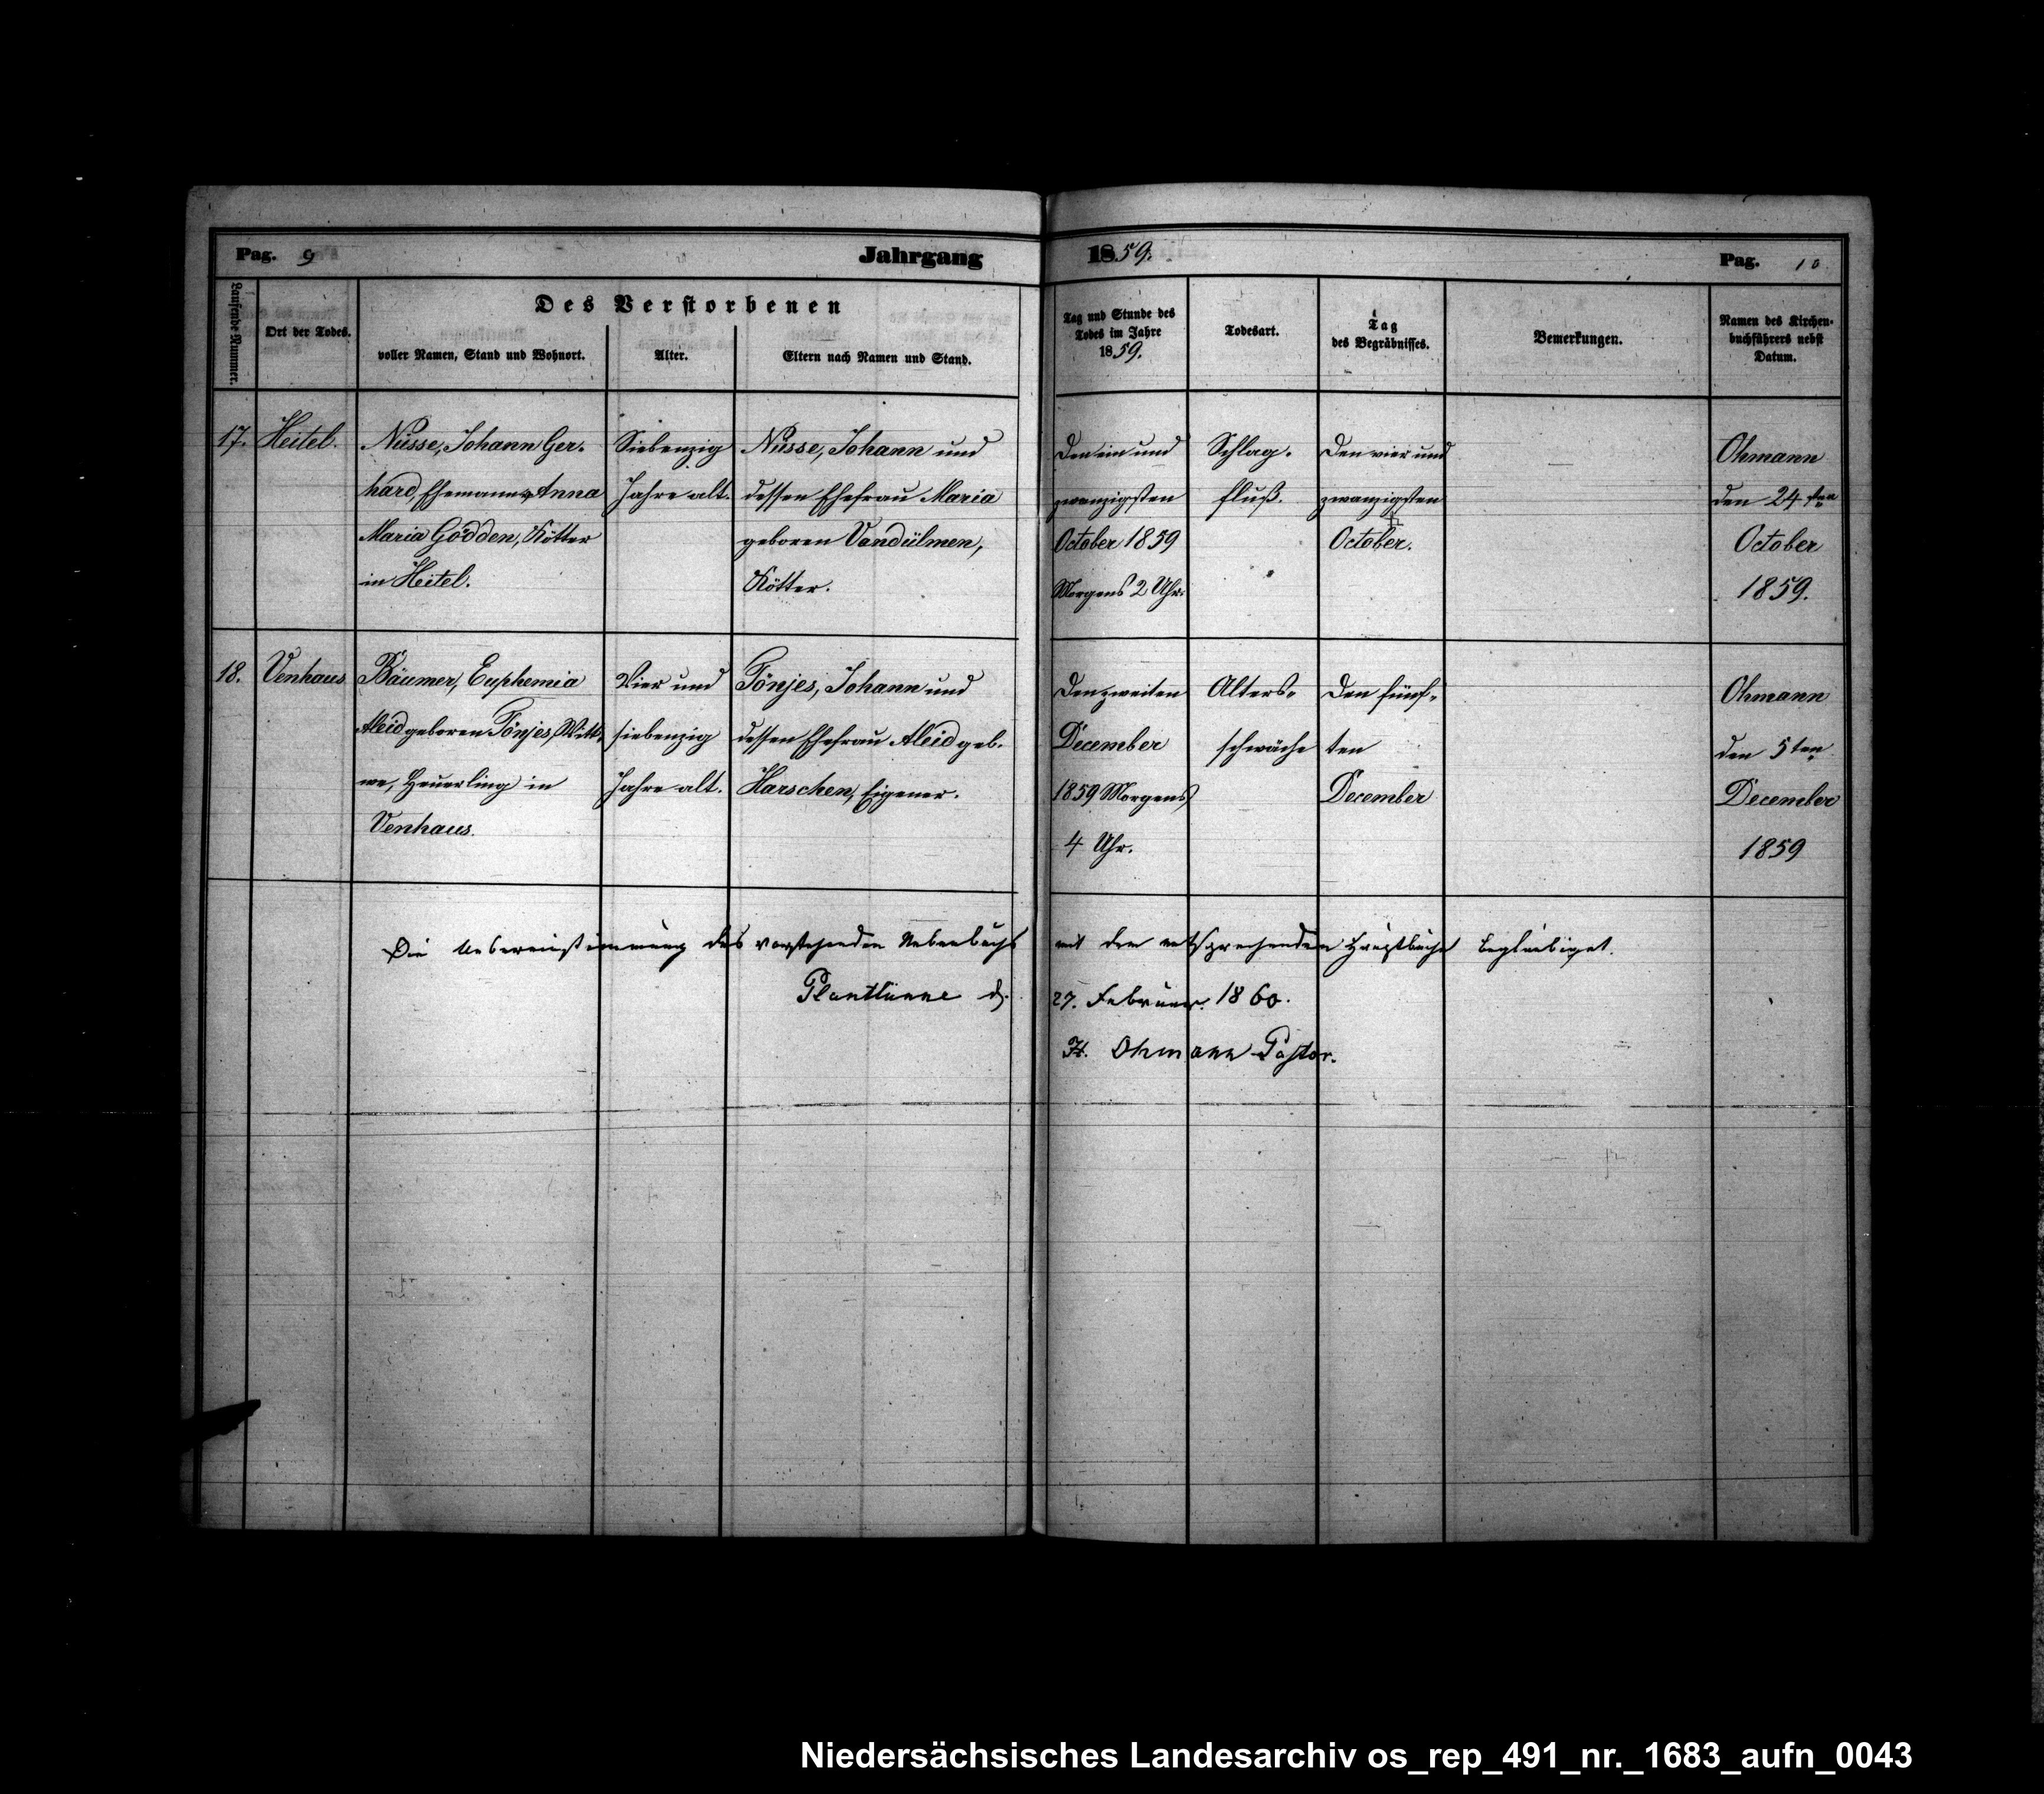 Pag. 9 Jahrgang 1859. Pag. 10
Laufende Nummer.
Ort der Todes.
Des Verstorbenen
voller Namen, Stand und Wohnort.
Alter.
Eltern nach Namen und Stand.
Tag und Stunde des
Todes im Jahre
1859.
Todesart.
Tag
des Begräbnisses.
Bemerkungen.
Namen des Kirchen-
buchführers nebst
Datum.
17.
Heitel.
Nüsse, Johann Ger-
hard, Ehemann v. Anna
Maria Gödden, Kötter
in Heitel.
Siebenzig
Jahre alt.
Nüsse, Johann und
dessen Ehefrau Maria
geboren Vandülmen,
Kötter.
Den ein und
zwanzigsten
October 1859
Morgens 2 Uhr.
Schlag-
fluß.
Den vier und
zwanzigsten
October.
—
Ohmann
den 24ten
October
1859.
18.
Venhaus
Bäumer, Euphemia
Aleid geboren Tönjes, Witt-
we, Heuerling in
Venhaus.
Vier und
siebenzig
Jahre alt.
Tönjes, Johann und
dessen Ehefrau Aleid geb.
Harschen, Eigener.
Den zweiten
December
1859 Morgens
4 Uhr.
Alters-
schwäche
Den fünf-
ten
December
Ohmann
den 5ten
December
1859
Die Uebereinstimmung des vorstehenden Nebenbuchs mit dem entsprechenden Hauptbuche beglaubiget.
Plantlünne d. 27. Februar 1860.
H. Ohmann Pastor.
Niedersächsisches Landesarchiv os_rep_491_nr._1683_aufn_0043